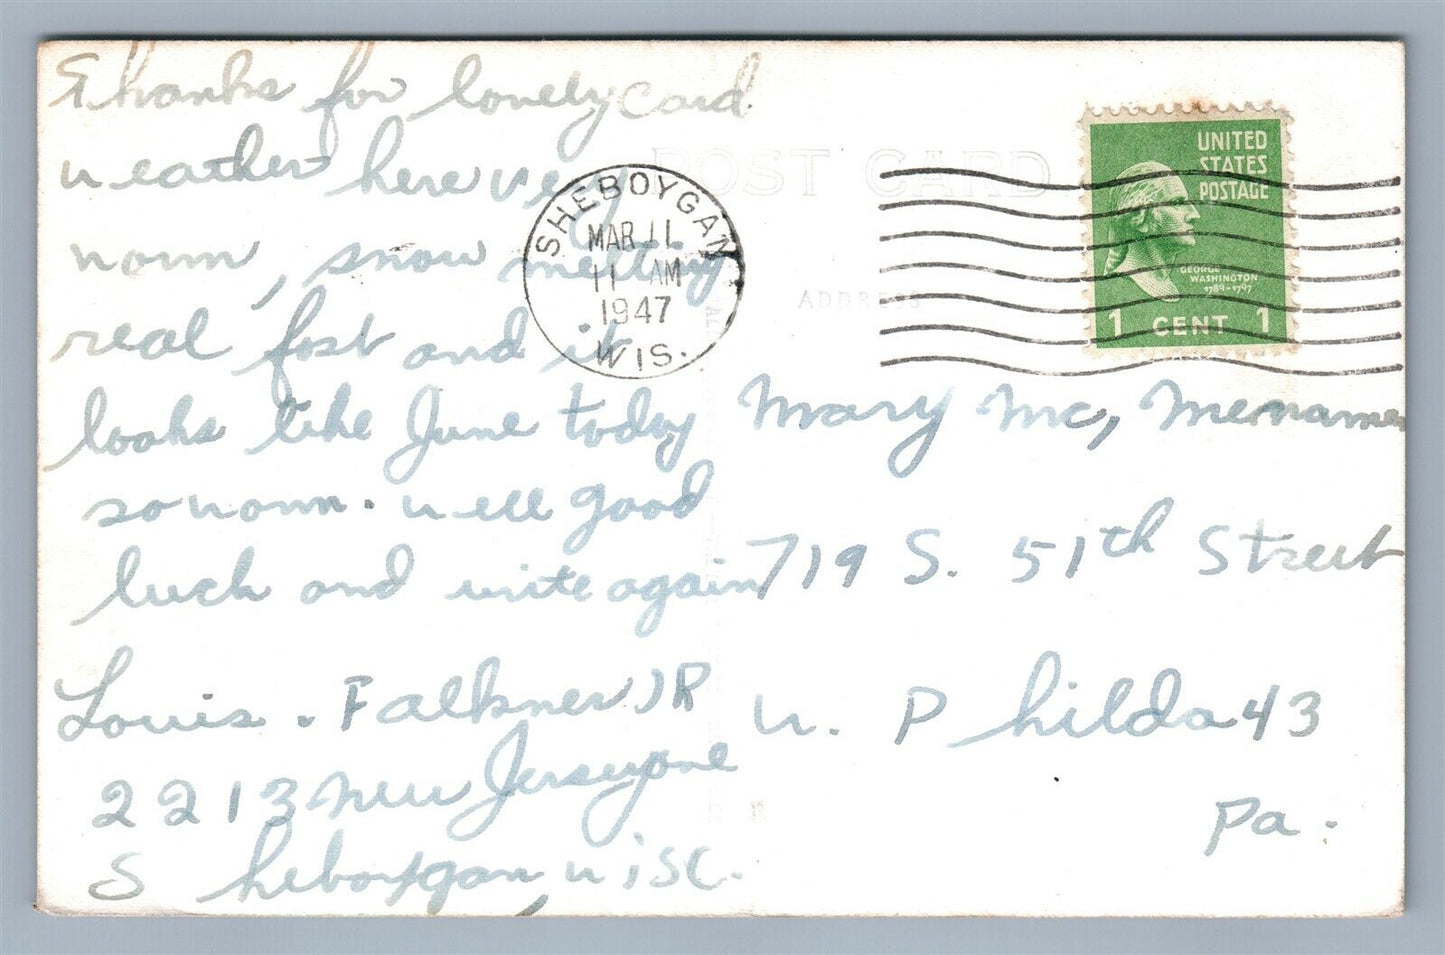 Thanks for lonely card
weather here very
worm, snow melting
real fast and it
looks like June today
so worm. well good
luck and write again
Louis. Falkner JR
2213 New Jersey ave
Sheboygan, Wisc.
POST CARD
ADDRESS
SHEBOYGAN
MAR 11
11 AM
1947
WIS.
UNITED
STATES
POSTAGE
GEORGE
WASHINGTON
1789-1797
1 CENT 1
Mary Mc, Menamen
719 S. 51th Street
W. Philda 43
Pa.